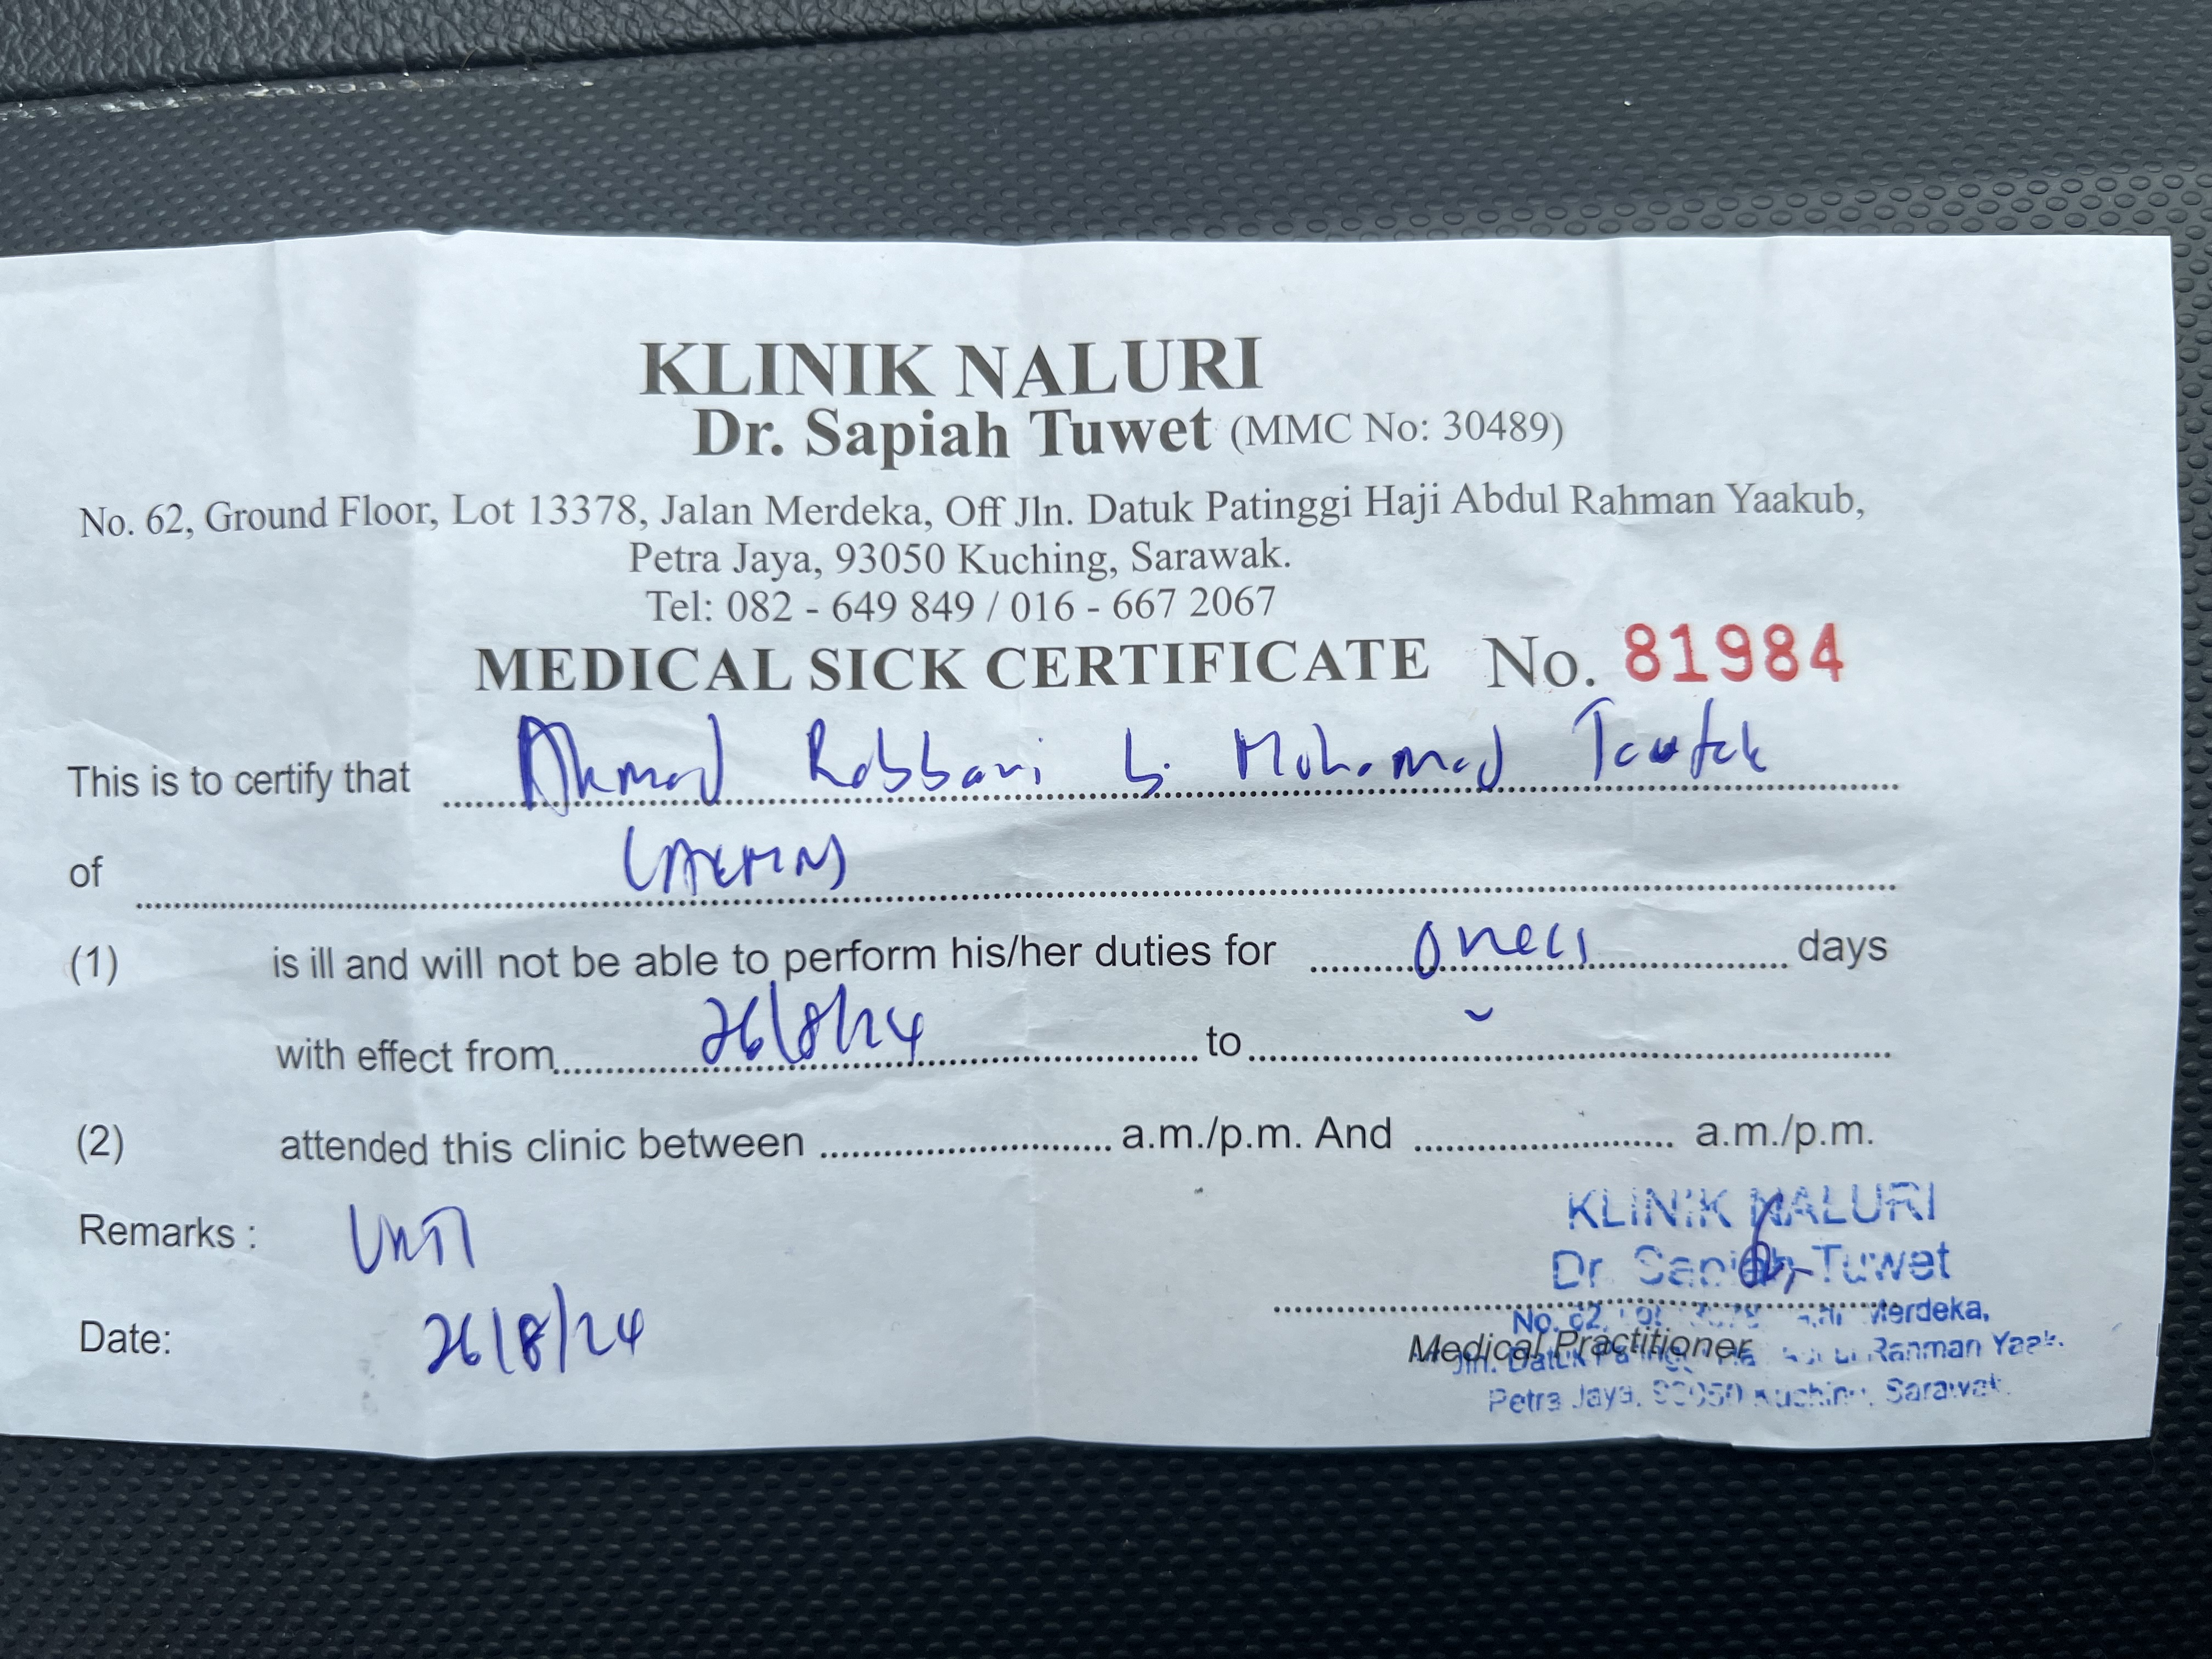 KLINIK NALURI
Dr. Sapiah Tuwet (MMC No: 30489)
No. 62, Ground Floor, Lot 13378, Jalan Merdeka, Off Jln. Datuk Patinggi Haji Abdul Rahman Yaakub,
Petra Jaya, 93050 Kuching, Sarawak.
Tel: 082 - 649 849 / 016 - 667 2067
MEDICAL SICK CERTIFICATE No. 81984
This is to certify that Ahmad Rabbani b. Mohamad
of
(1) is ill and will not be able to perform his/her duties for days
with effect from 26/8/24 to
(2) attended this clinic between a.m./p.m. And a.m./p.m.
Remarks :
Date: 26/8/24
KLINIK NALURI
Dr. Sapiah Tuwet
Medical Practitioner
No. 62, Merdeka,
Jln. Datuk Rahman
Petra Jaya, 93050 Kuching, Sarawak.